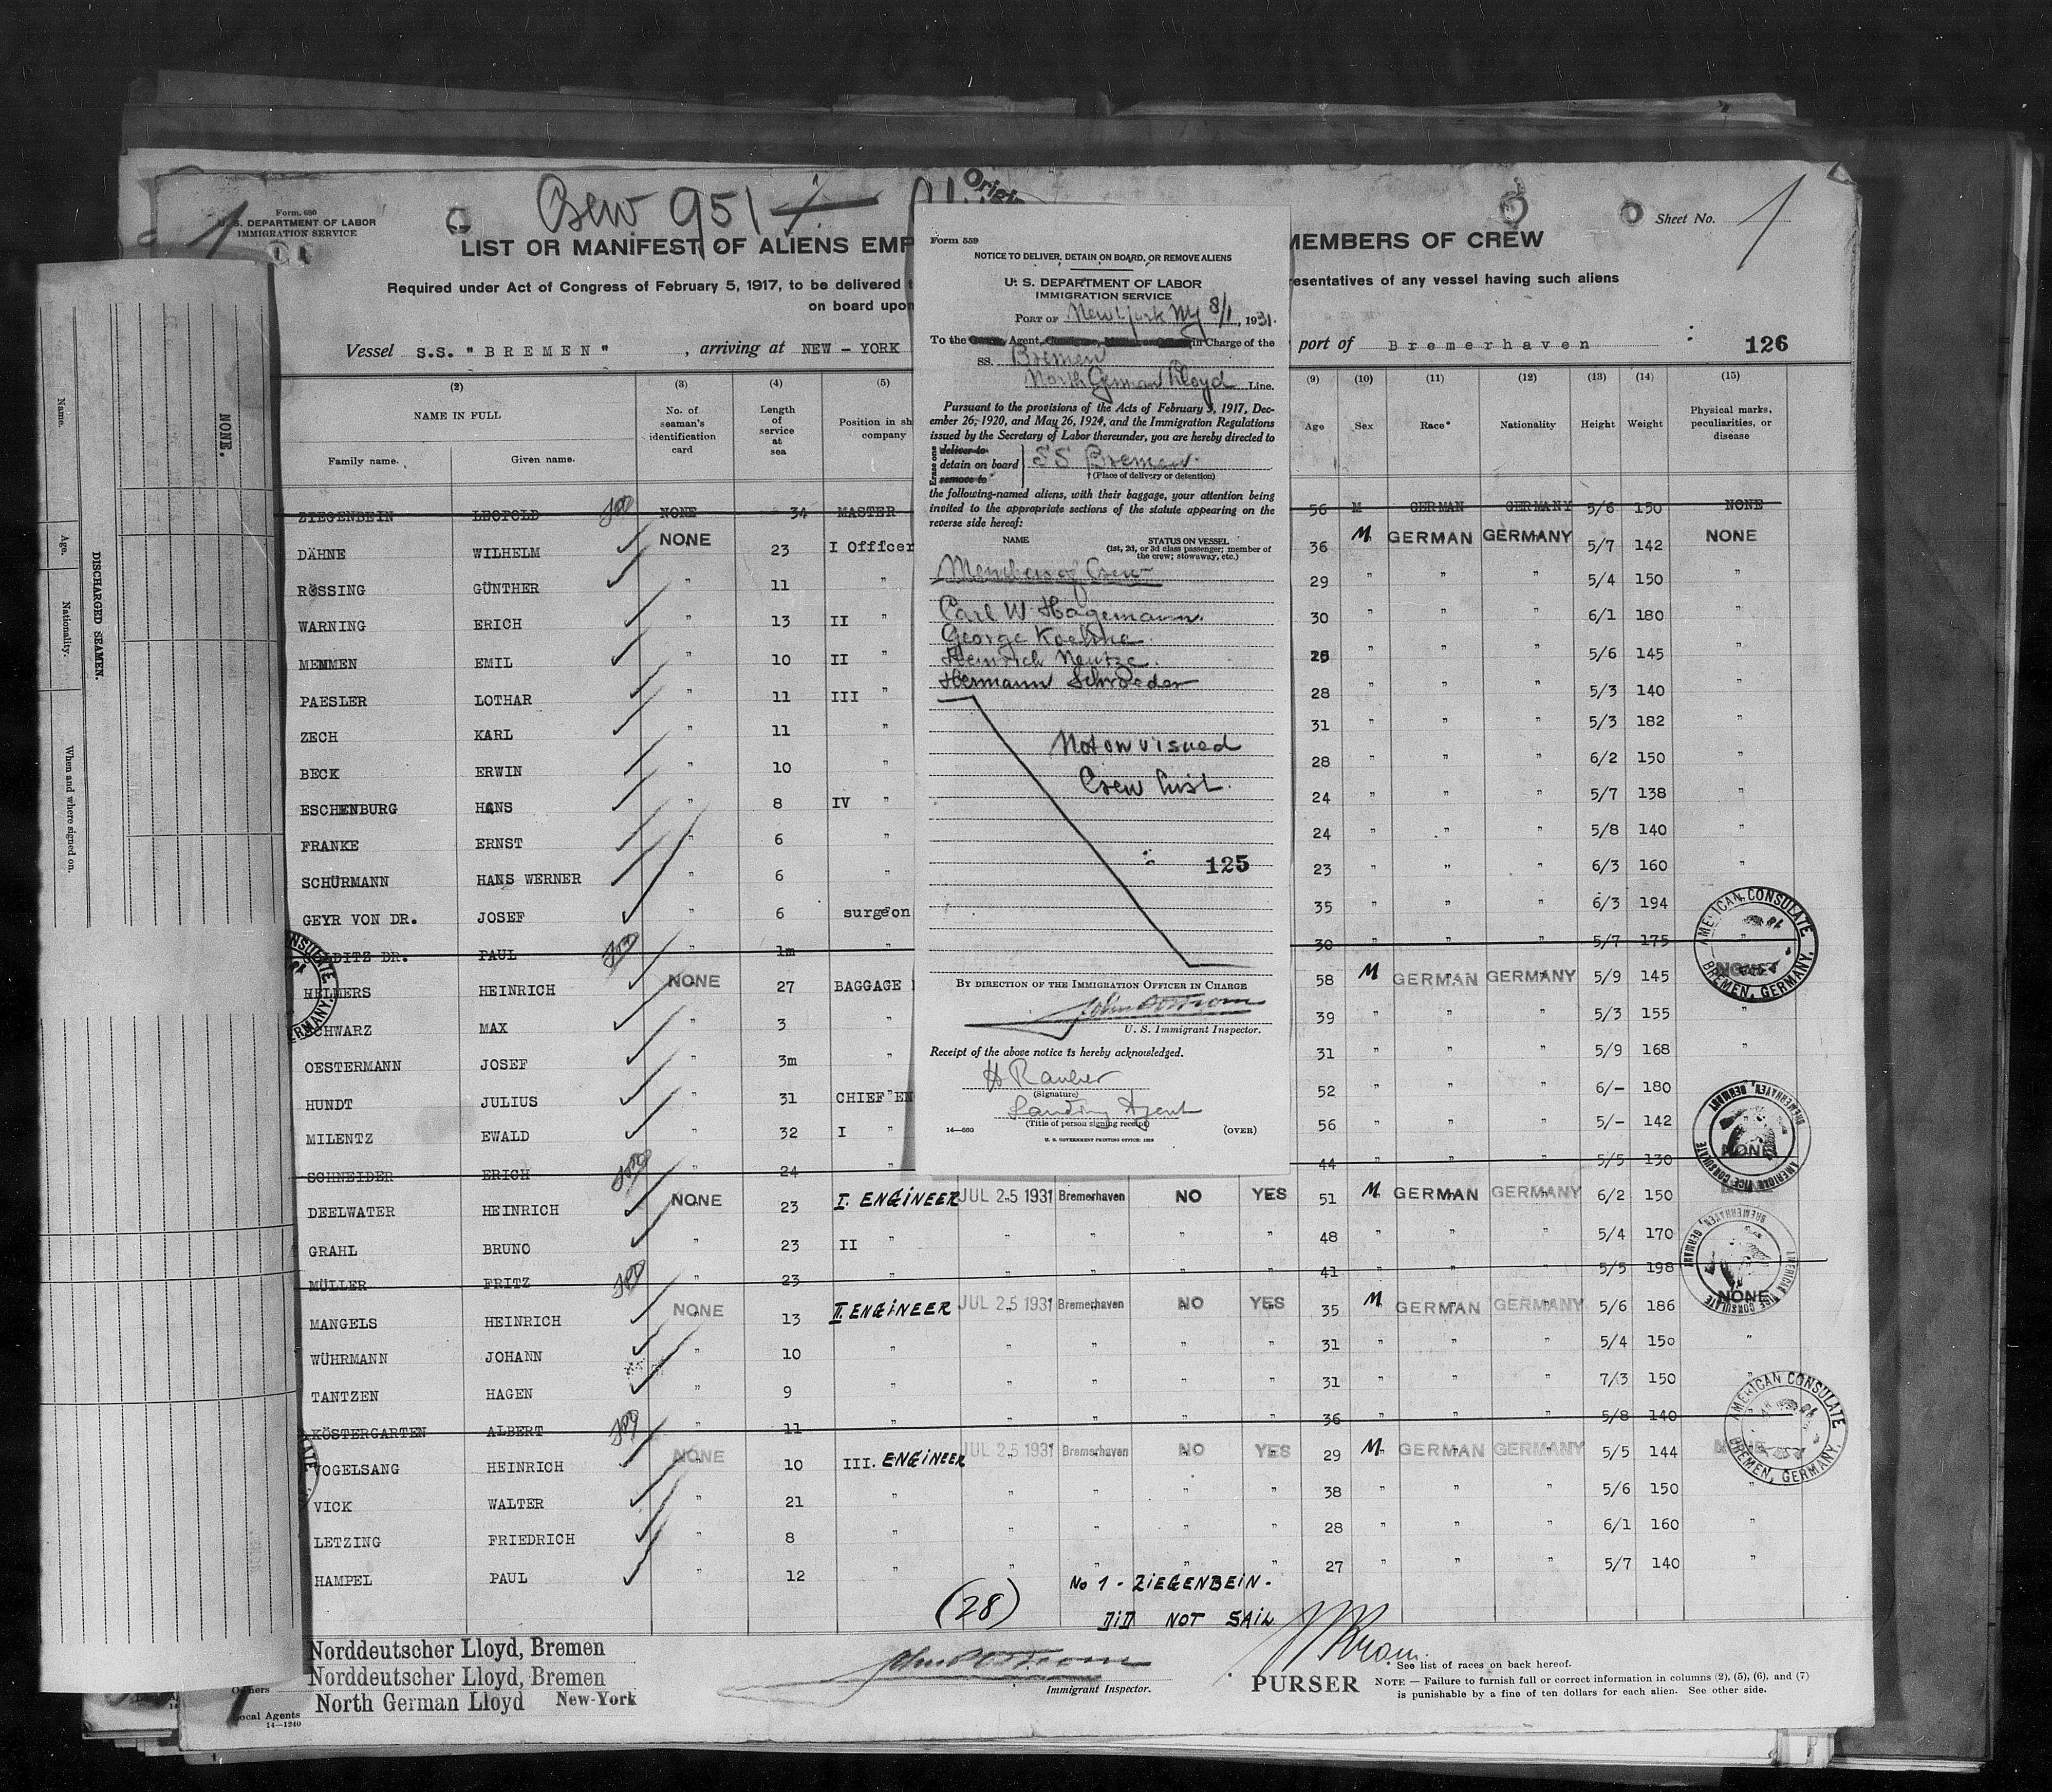 Crew 951
Form 680
U. S. DEPARTMENT OF LABOR
IMMIGRATION SERVICE
Sheet No. 1
LIST OR MANIFEST OF ALIENS EMP
MEMBERS OF CREW
Required under Act of Congress of February 5, 1917, to be delivered t
resentatives of any vessel having such aliens
on board upon
Vessel S.S. "BREMEN" , arriving at NEW-YORK
port of Bremerhaven
126
(2) (3) (4) (5) (9) (10) (11) (12) (13) (14) (15)
NAME IN FULL
Family name. Given name.
No. of seaman's identification card
Length of service at sea
Position in sh
company
Age Sex Race* Nationality Height Weight Physical marks, peculiarities, or disease
ZIEGENBEIN LEOPOLD NONE 34 MASTER 56 M GERMAN GERMANY 5/6 150 NONE
DÄHNE WILHELM NONE 23 I Officer 36 M GERMAN GERMANY 5/7 142 NONE
RÖSSING GÜNTHER " 11 " 29 " " " 5/4 150 "
WARNING ERICH " 13 II " 30 " " " 6/1 180 "
MEMMEN EMIL " 10 II " " " " 5/6 145 "
PAESLER LOTHAR " 11 III " 28 " " " 5/3 140 "
ZECH KARL " 11 " 31 " " " 5/3 182 "
BECK ERWIN " 10 " 28 " " " 6/2 150 "
ESCHENBURG HANS " 8 IV " 24 " " " 5/7 138 "
FRANKE ERNST " 6 " 24 " " " 5/8 140 "
SCHÜRMANN HANS WERNER " 6 " 23 " " " 6/3 160 "
GEYR VON DR. JOSEF " 6 surgeon 35 " " " 6/3 194 "
DITZ DR. PAUL " 1m " 30 " " " 5/7 175 "
HELMERS HEINRICH NONE 27 BAGGAGE 58 M GERMAN GERMANY 5/9 145 NONE
SCHWARZ MAX " 3 " 39 " " " 5/3 155 "
OESTERMANN JOSEF " 3m " 31 " " " 5/9 168 "
HUNDT JULIUS " 31 CHIEF EN 52 " " " 6/– 180
MILENTZ EWALD " 32 I " 56 " " " 5/– 142 NONE
SCHNEIDER ERICH " 24 " 44 " " " 5/5 130
DEELWATER HEINRICH NONE 23 I. ENGINEER JUL 25 1931 Bremerhaven NO YES 51 M GERMAN GERMANY 6/2 150
GRAHL BRUNO " 23 II " " " " " 48 " " " 5/4 170
MÜLLER FRITZ " 23 " " " " " 41 " " " 5/5 198
MANGELS HEINRICH NONE 13 II. ENGINEER JUL 25 1931 Bremerhaven NO YES 35 M GERMAN GERMANY 5/6 186 NONE
WÜHRMANN JOHANN " 10 " " " " " 31 " " " 5/4 150 "
TANTZEN HAGEN " 9 " " " " " 31 " " " 7/3 150 "
KÖSTERGARTEN ALBERT " 11 " " " " " 36 " " " 5/8 140
VOGELSANG HEINRICH NONE 10 III. ENGINEER JUL 25 1931 Bremerhaven NO YES 29 M GERMAN GERMANY 5/5 144 NONE
VICK WALTER " 21 " " " " " 38 " " " 5/6 150 "
LETZING FRIEDRICH " 8 " " " " " 28 " " " 6/1 160 "
HAMPEL PAUL " 12 " " " " " 27 " " " 5/7 140 "
(28)
No 1 - ZIEGENBEIN -
DID NOT SAIL
Norddeutscher Lloyd, Bremen
Norddeutscher Lloyd, Bremen
Owners
North German Lloyd New-York
Local Agents
14—1240
Immigrant Inspector.
PURSER
See list of races on back hereof.
NOTE — Failure to furnish full or correct information in columns (2), (5), (6), and (7)
is punishable by a fine of ten dollars for each alien. See other side.
Form 559
NOTICE TO DELIVER, DETAIN ON BOARD, OR REMOVE ALIENS
U. S. DEPARTMENT OF LABOR
IMMIGRATION SERVICE
PORT OF New York NY 8/1, 1931.
To the Agent, in Charge of the
SS. Bremen
North German Lloyd Line.
Pursuant to the provisions of the Acts of February 5, 1917, Dec-
ember 26, 1920, and May 26, 1924, and the Immigration Regulations
issued by the Secretary of Labor thereunder, you are hereby directed to
Erase one
deliver to
detain on board SS Bremen.
remove to
† (Place of delivery or detention)
the following-named aliens, with their baggage, your attention being
invited to the appropriate sections of the statute appearing on the
reverse side hereof:
NAME
STATUS ON VESSEL
(1st, 2d, or 3d class passenger; member of
the crew; stowaway, etc.)
Members of Crew
Carl W. Hagemann.
George Koehne.
Heinrich Neutze.
Hermann Schroeder
Not on visued
Crew list.
125
BY DIRECTION OF THE IMMIGRATION OFFICER IN CHARGE
U. S. Immigrant Inspector.
Receipt of the above notice is hereby acknowledged.
H Rauber
(Signature)
Landing Agent
(Title of person signing receipt)
14—660
(OVER)
U. S. GOVERNMENT PRINTING OFFICE: 1928
AMERICAN CONSULATE
BREMEN, GERMANY.
AMERICAN VICE CONSULATE
BREMERHAVEN, GERMANY
AMERICAN VICE CONSULATE
BREMERHAVEN, GERMANY
AMERICAN CONSULATE
BREMEN, GERMANY.
DISCHARGED SEAMEN.
Name.
Age.
Nationality.
When and where signed on.
NONE.